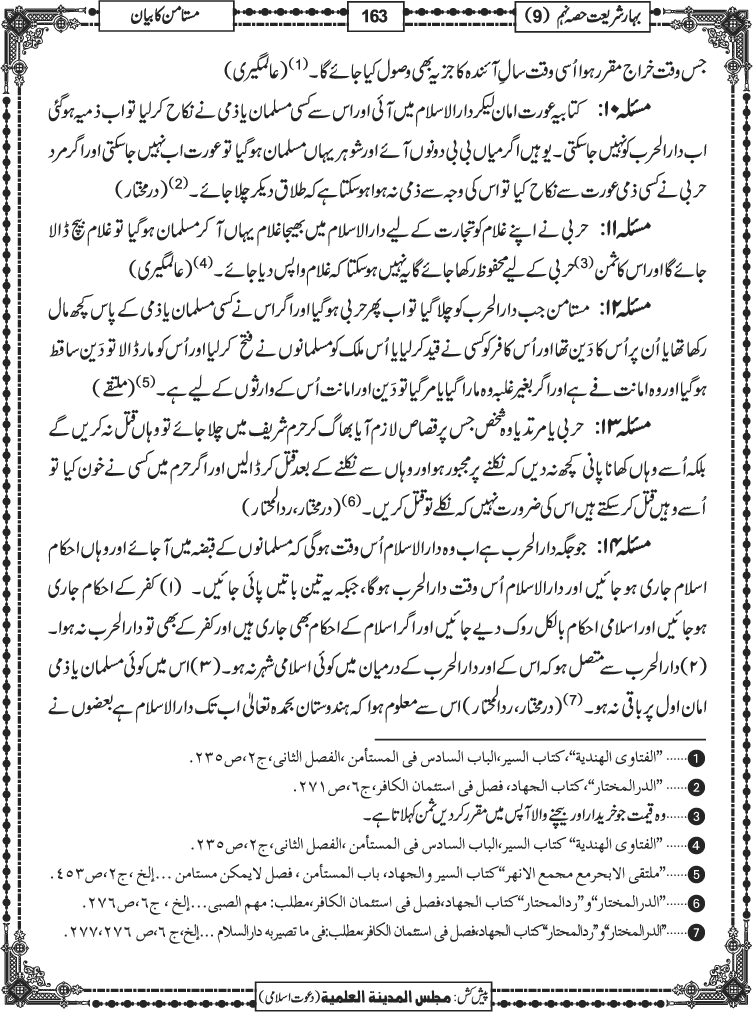 بہار شریعت حصہ نہم (9)
163
مستامن کا بیان
جس وقت خراج مقرر ہوا اُسی وقت سالِ آئندہ کا جزیہ بھی وصول کیا جائے گا۔(1) (عالمگیری)
مسئلہ ۱۰: کتابیہ عورت امان لیکر دارالاسلام میں آئی اور اس سے کسی مسلمان یا ذمی نے نکاح کر لیا تو اب ذمیہ ہوگئی
اب دارالحرب کو نہیں جا سکتی۔ یو ہیں اگر میاں بی بی دونوں آئے اور شوہر یہاں مسلمان ہو گیا تو عورت اب نہیں جا سکتی اور اگر مرد
حربی نے کسی ذمی عورت سے نکاح کیا تو اس کی وجہ سے ذمی نہ ہوا ہو سکتا ہے کہ طلاق دیکر چلا جائے۔(2) (درمختار)
مسئلہ ۱۱: حربی نے اپنے غلام کو تجارت کے لیے دارالاسلام میں بھیجا غلام یہاں آ کر مسلمان ہو گیا تو غلام بیچ ڈالا
جائے گا اور اس کا ثمن(3) حربی کے لیے محفوظ رکھا جائے گا یہ نہیں ہو سکتا کہ غلام واپس دیا جائے۔(4) (عالمگیری)
مسئلہ ۱۲: مستامن جب دارالحرب کو چلا گیا تو اب پھر حربی ہو گیا اور اگر اس نے کسی مسلمان یا ذمی کے پاس کچھ مال
رکھا تھا یا اُن پر اُس کا دَین تھا اور اُس کافر کو کسی نے قید کر لیا یا اُس ملک کو مسلمانوں نے فتح کر لیا اور اُس کو مار ڈالا تو دَین ساقط
ہو گیا اور وہ امانت فے ہے اور اگر بغیر غلبہ وہ مارا گیا یا مر گیا تو دَین اور امانت اُس کے وارثوں کے لیے ہے۔(5) (ملتقے)
مسئلہ ۱۳: حربی یا مرتد یا وہ شخص جس پر قصاص لازم آیا بھاگ کر حرم شریف میں چلا جائے تو وہاں قتل نہ کریں گے
بلکہ اُسے وہاں کھانا پانی کچھ نہ دیں کہ نکلنے پر مجبور ہو اور وہاں سے نکلنے کے بعد قتل کر ڈالیں اور اگر حرم میں کسی نے خون کیا تو
اُسے وہیں قتل کر سکتے ہیں اس کی ضرورت نہیں کہ نکلے تو قتل کریں۔(6) (درمختار، ردالمحتار)
مسئلہ ۱۴: جو جگہ دارالحرب ہے اب وہ دارالاسلام اُس وقت ہوگی کہ مسلمانوں کے قبضہ میں آ جائے اور وہاں احکام
اسلام جاری ہو جائیں اور دارالاسلام اُس وقت دارالحرب ہوگا، جبکہ یہ تین باتیں پائی جائیں۔ (۱) کفر کے احکام جاری
ہو جائیں اور اسلامی احکام بالکل روک دیے جائیں اور اگر اسلام کے احکام بھی جاری ہیں اور کفر کے بھی تو دارالحرب نہ ہوا۔
(۲) دارالحرب سے متصل ہو کہ اس کے اور دارالحرب کے درمیان میں کوئی اسلامی شہر نہ ہو۔ (۳) اس میں کوئی مسلمان یا ذمی
امان اول پر باقی نہ ہو۔(7) (درمختار، ردالمحتار) اس سے معلوم ہوا کہ ہندوستان بحمدہ تعالٰی اب تک دارالاسلام ہے بعضوں نے
1 ......"الفتاوى الهندية"، كتاب السير، الباب السادس فى المستأمن، الفصل الثانى، ج٢، ص٢٣٥.
2 ......"الدرالمختار"، كتاب الجهاد، فصل فى استئمان الكافر، ج٦، ص٢٧١.
3 ......وہ قیمت جو خریدار اور بیچنے والا آپس میں مقرر کردیں ثمن کہلاتا ہے۔
4 ......"الفتاوى الهندية" كتاب السير، الباب السادس فى المستأمن، الفصل الثانى، ج٢، ص٢٣٥.
5 ......"ملتقى الابحر مع مجمع الانهر" كتاب السير والجهاد، باب المستأمن، فصل لايمكن مستامن ...إلخ، ج٢، ص٤٥٣.
6 ......"الدرالمختار" و "ردالمحتار" كتاب الجهاد، فصل فى استئمان الكافر، مطلب: مهم الصبى...إلخ، ج٦، ص٢٧٦.
7 ......"الدرالمختار" و "ردالمحتار" كتاب الجهاد، فصل فى استئمان الكافر، مطلب: فى ما تصيربه دارالسلام ...إلخ، ج٦، ص ٢٧٦،٢٧٧.
پیش کش: مجلس المدينة العلمية (دعوت اسلامی)